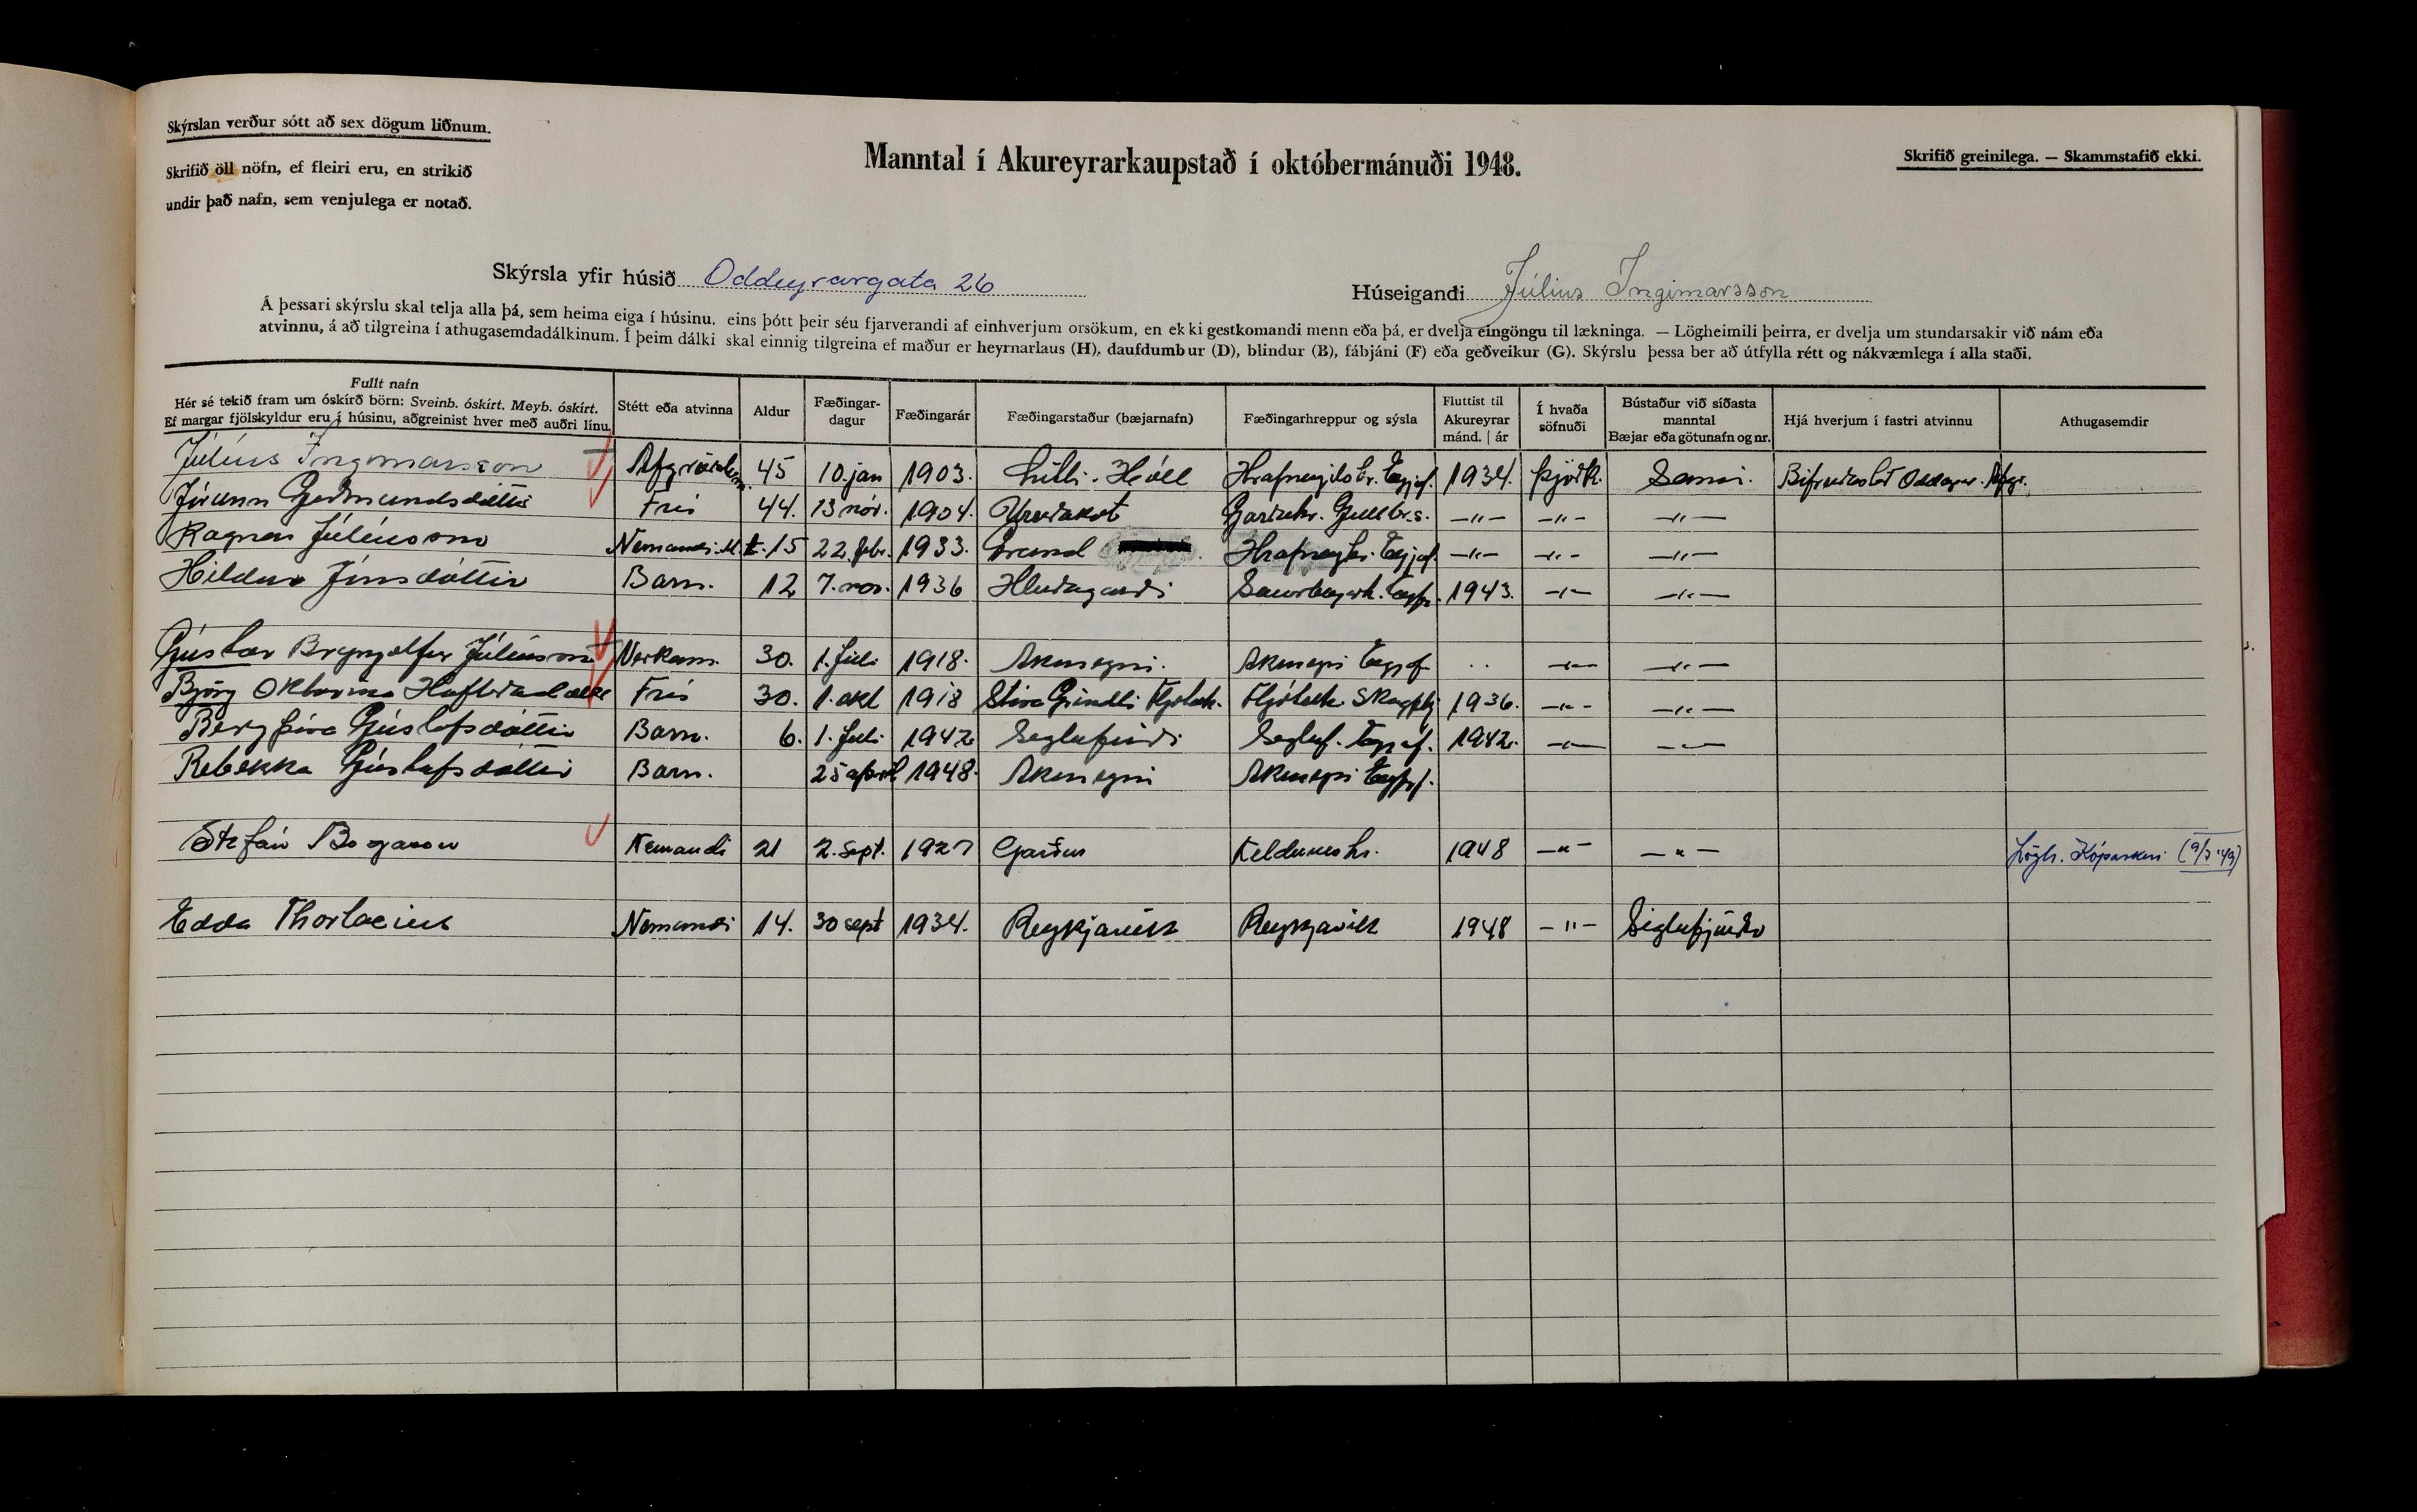 Skýrslan verður sótt að sex dögum liðnum.
Skrifið öll nöfn, ef fleiri eru, en strikið
undir það nafn, sem venjulega er notað.
Manntal í Akureyrarkaupstað í októbermánuði 1948.
Skrifið greinilega. — Skammstafið ekki.
Skýrsla yfir húsið Oddeyrargata 26
Húseigandi Júlíus Ingimarsson
Á þessari skýrslu skal telja alla þá, sem heima eiga í húsinu, eins þótt þeir séu fjarverandi af einhverjum orsökum, en ekki gestkomandi menn eða þá, er dvelja eingöngu til lækninga. — Lögheimili þeirra, er dvelja um stundarsakir við nám eða
atvinnu, á að tilgreina í athugasemdadálkinum. Í þeim dálki skal einnig tilgreina ef maður er heyrnarlaus (H), daufdumbur (D), blindur (B), fábjáni (F) eða geðveikur (G). Skýrslu þessa ber að útfylla rétt og nákvæmlega í alla staði.
Fullt nafn
Hér sé tekið fram um óskírð börn: Sveinb. óskírt. Meyb. óskírt.
Ef margar fjölskyldur eru í húsinu, aðgreinist hver með auðri línu.
Stétt eða atvinna
Aldur
Fæðingar-
dagur
Fæðingarár
Fæðingarstaður (bæjarnafn)
Fæðingarhreppur og sýsla
Fluttist til
Akureyrar
mánd. | ár
Í hvaða
söfnuði
Bústaður við síðasta
manntal
Bæjar eða götunafn og nr.
Hjá hverjum í fastri atvinnu
Athugasemdir
Júlíus Ingimarsson 45 10. jan 1903. Litli-Hóll Hrafnagilshr. Eyjaf. 1934. Þjóðk. Sami.
Jórunn Guðmundsdóttir Frú 44. 13 nóv. 1904. Urriðakot Garðahr. Gullbr.s. —"— —"— —"—
Ragnar Júlíusson Nemandi M.A. 15 22. febr. 1933. Grund Hrafnaghr. Eyjaf. —"— —"— —"—
Hildur Jónsdóttir Barn. 12 7. nov. 1936 Hleiðagarði Saurbæjarh. Eyjf. 1943. —"— —"—
Gústav Brynjolfur Júlíusson Verkam. 30. 1. Júlí 1918. Akureyri. Akureyri Eyjaf. .. —"— —"—
Björg Oktavía Frú 30. 1. okt 1918 Stóra Grindli Fljótah. Fljótah. Skagafj 1936. —"— —"—
Bergþóra Gústafsdóttir Barn. 6. 1. Júlí 1942 Siglufirði Sigluf. Eyjaf. 1942. —"— —"—
Rebekka Gústafsdóttir Barn. 25 apríl 1948. Akureyri Akureyri Eyjaf.
Stefán Bogason Nemandi 21 2. sept. 1927 Garður Kelduneshr. 1948 —"— —"— Lögh. Kópaskeri (9/3 '49)
Edda Thorlacius Nemandi 14. 30 sept 1934. Reykjavík Reykjavík 1948 —"— Siglufjörður